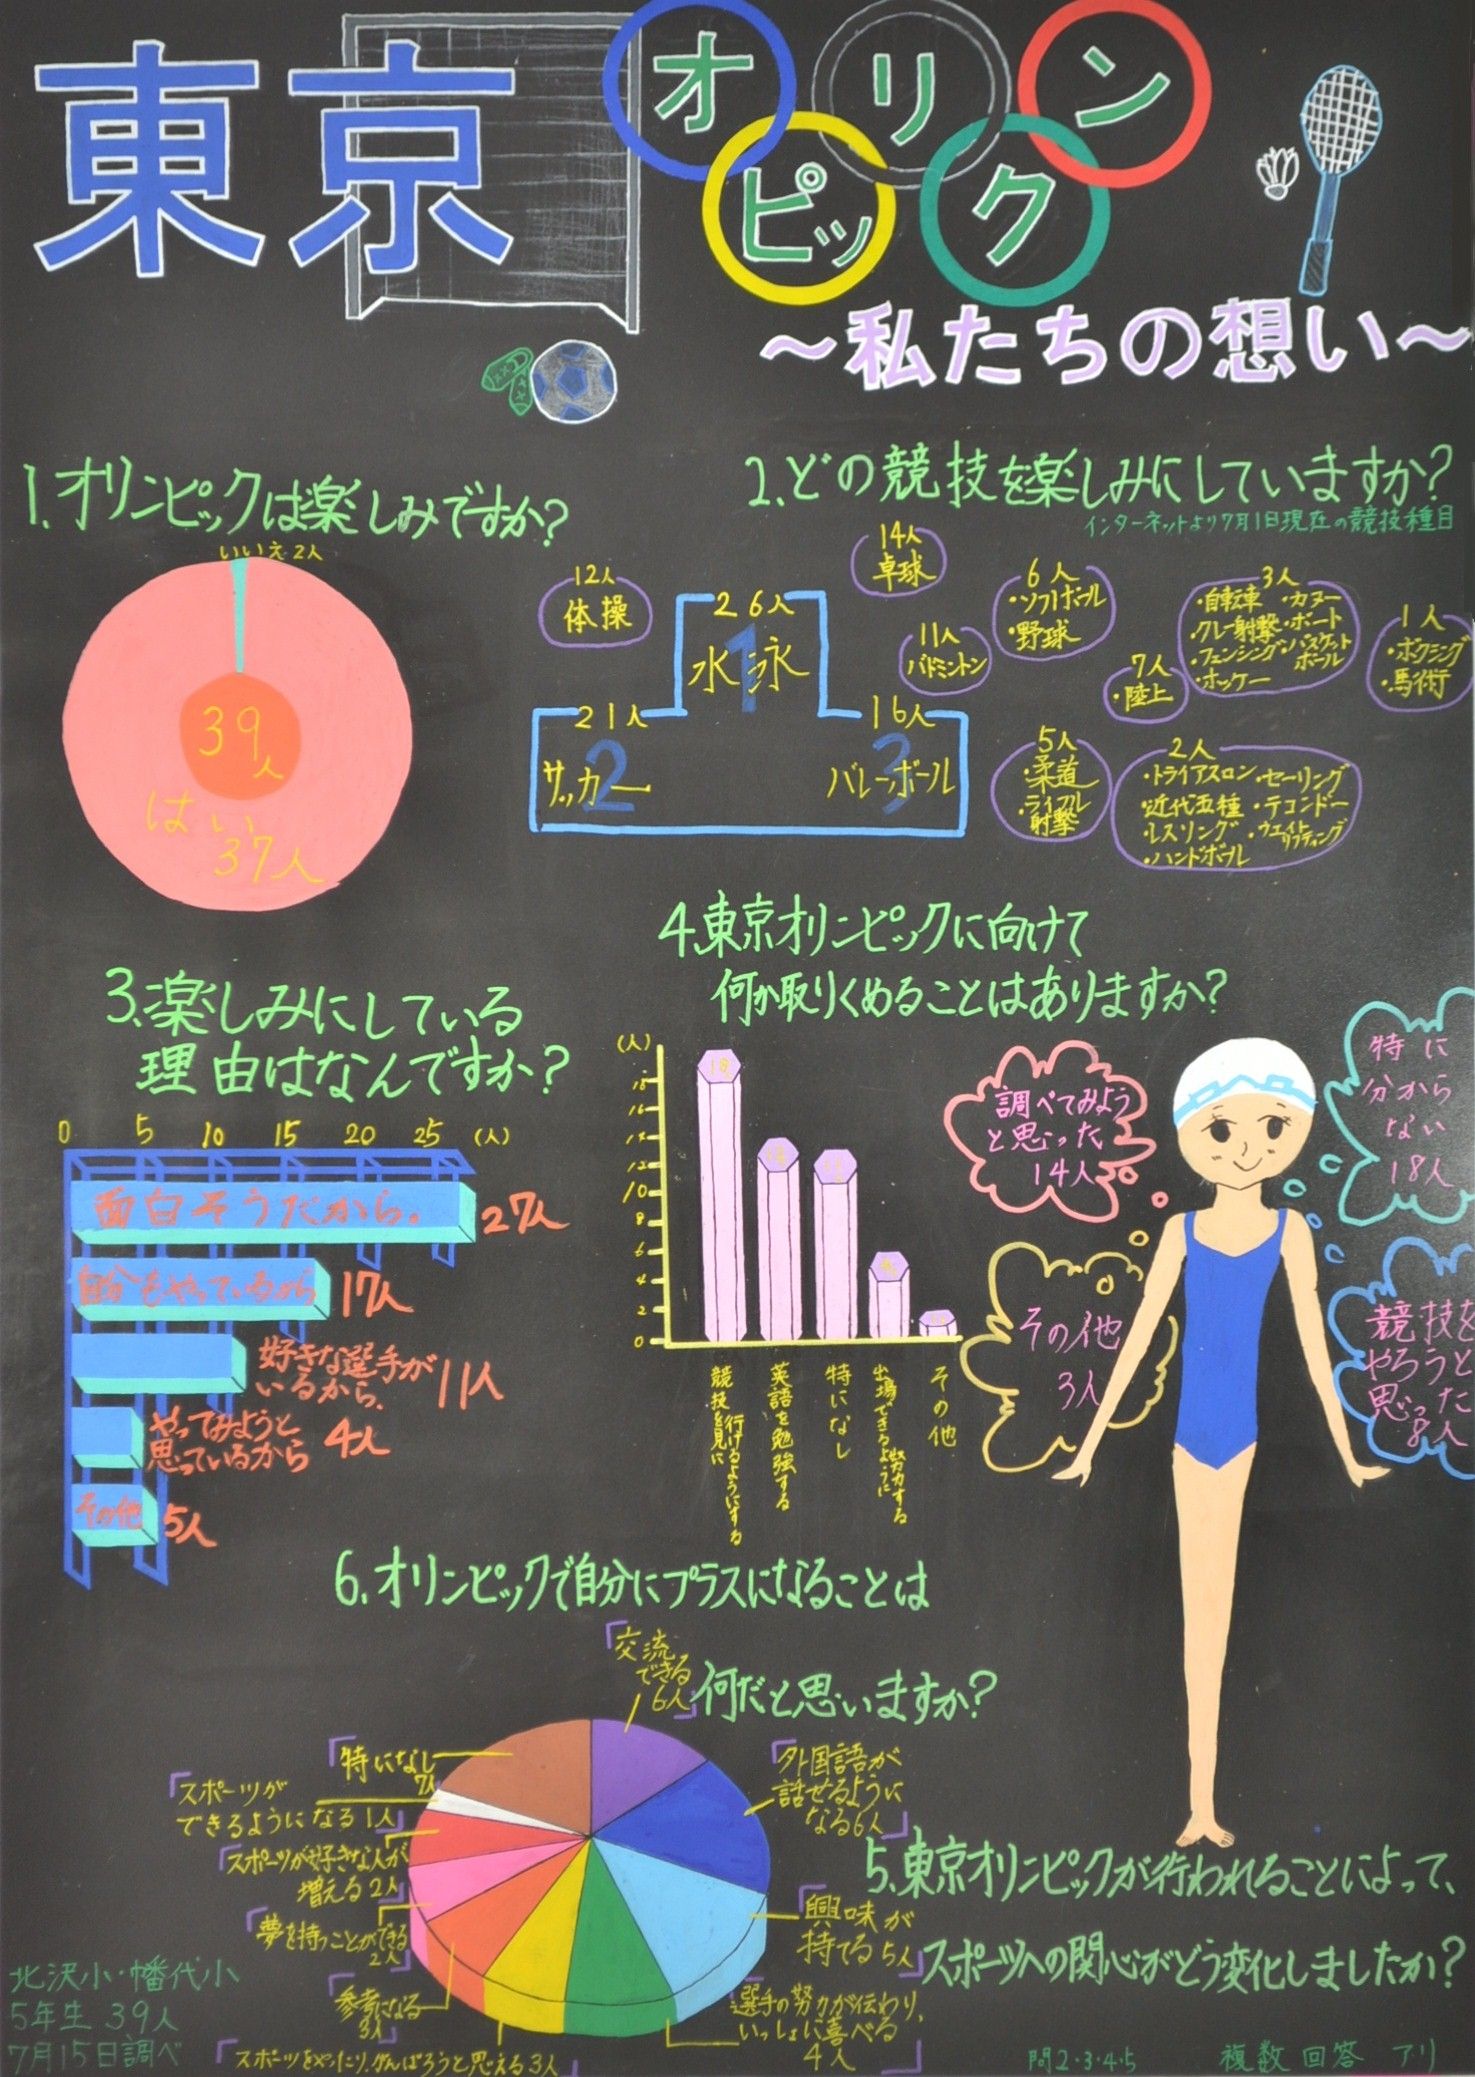 東京
オリンピック
～私たちの想い～
1.オリンピックは楽しみですか?
いいえ2人
39人
はい
37人
2.どの競技を楽しみにしていますか?
インターネットより7月1日現在の競技種目
12人
体操
26人
1
水泳
21人
2
サッカー
16人
3
バレーボール
14人
卓球
11人
バドミントン
6人
・ソフトボール
・野球
7人
・陸上
3人
・自転車 ・カヌー
・クレー射撃 ・ボート
・フェンシング ・バスケットボール
・ホッケー
1人
・ボクシング
・馬術
5人
・柔道
・ライフル
射撃
2人
・トライアスロン ・セーリング
・近代五種 ・テコンドー
・レスリング ・ウエイトリフティング
・ハンドボール
3.楽しみにしている
理由はなんですか?
0 5 10 15 20 25 (人)
面白そうだから。 27人
自分もやっているから 17人
好きな選手が
いるから、 11人
やってみようと
思っているから 4人
その他 5人
4.東京オリンピックに向けて
何か取りくめることはありますか?
(人)
18
16
14
12
10
8
6
4
2
0
競技を見に
行けるようにする
英語を勉強する
特になし
出場できるように
努力する
その他
調べてみよう
と思った
14人
特に
分から
ない
18人
その他
3人
競技を
やろうと
思った
8人
5.東京オリンピックが行われることによって、
スポーツへの関心がどう変化しましたか?
6.オリンピックで自分にプラスになることは
何だと思いますか?
「交流
できる
6人」
「外国語が
話せるように
なる6人」
「興味が
持てる5人」
「選手の努力が伝わり、
いっしょに喜べる
4人」
「スポーツをやったり、がんばろうと思える3人」
「参考になる
3人」
「夢を持つことができる
2人」
「スポーツが好きな人が
増える2人」
「スポーツが
できるようになる1人」
「特になし
7人」
北沢小・幡代小
5年生 39人
7月15日調べ
問2・3・4・5 複数回答 アリ